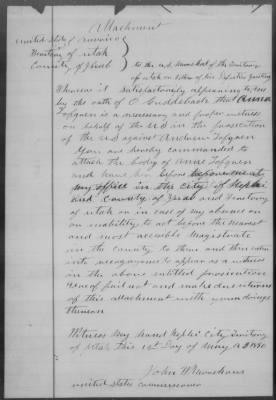 Attachment
United States of America
Territory of Utah
County of Juab
to the U.S. Marshal of the Territory
of Utah or Either of his Deputies Greeting
Whereas it Satisfactorily appearing to me
by the oath of O Cuddeback that Anna
Tofgren is a necessary and proper witness
on behalf of the US in the prosecution
of the US against Andrew Tofgren
You are hereby commanded to
attach the body of Anna Tofgren
and have her before me at
my office in the City of Nephi
and County of Juab and Territory
of Utah or in case of my absence or
or inability to act before the nearest
and most accessible Magistrate
in the County to there and then enter
into recognizance to appear as a witness
in the above entitled prosecution
Hereof fail not and make due return
of this attachment with your doings
thereon
Witness my hand Nephi City Territory
of Utah this 1st Day of May AD 18
John W
United States Commissioner